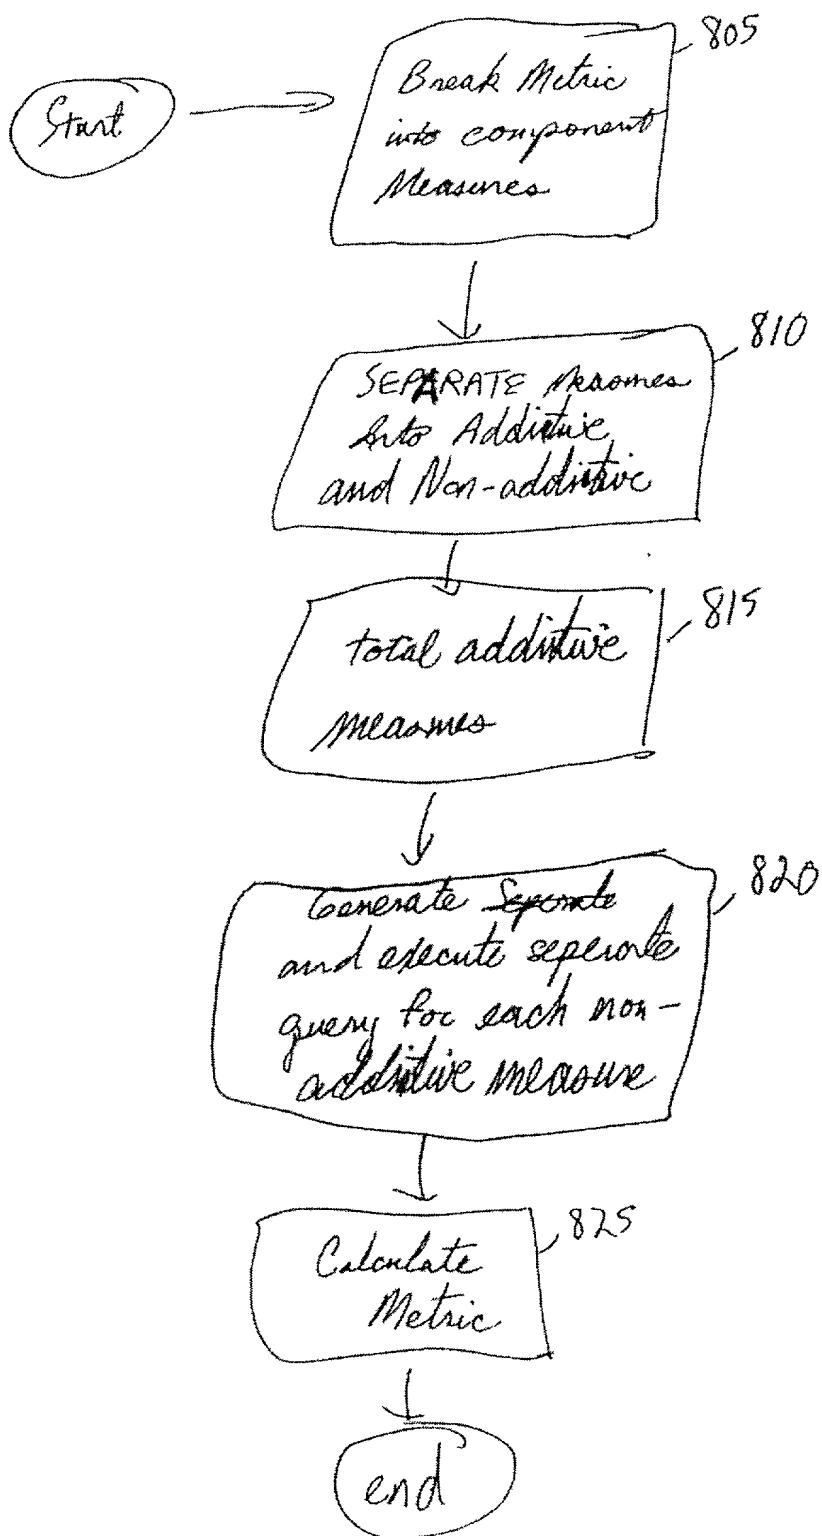 805
Start
Break Metric
into component
Measures
810
SEPARATE Measures
Into Additive
and Non-additive
815
total additive
measures
820
Generate Seperate
and execute seperate
query for each non-
additive measure
825
Calculate
Metric
end